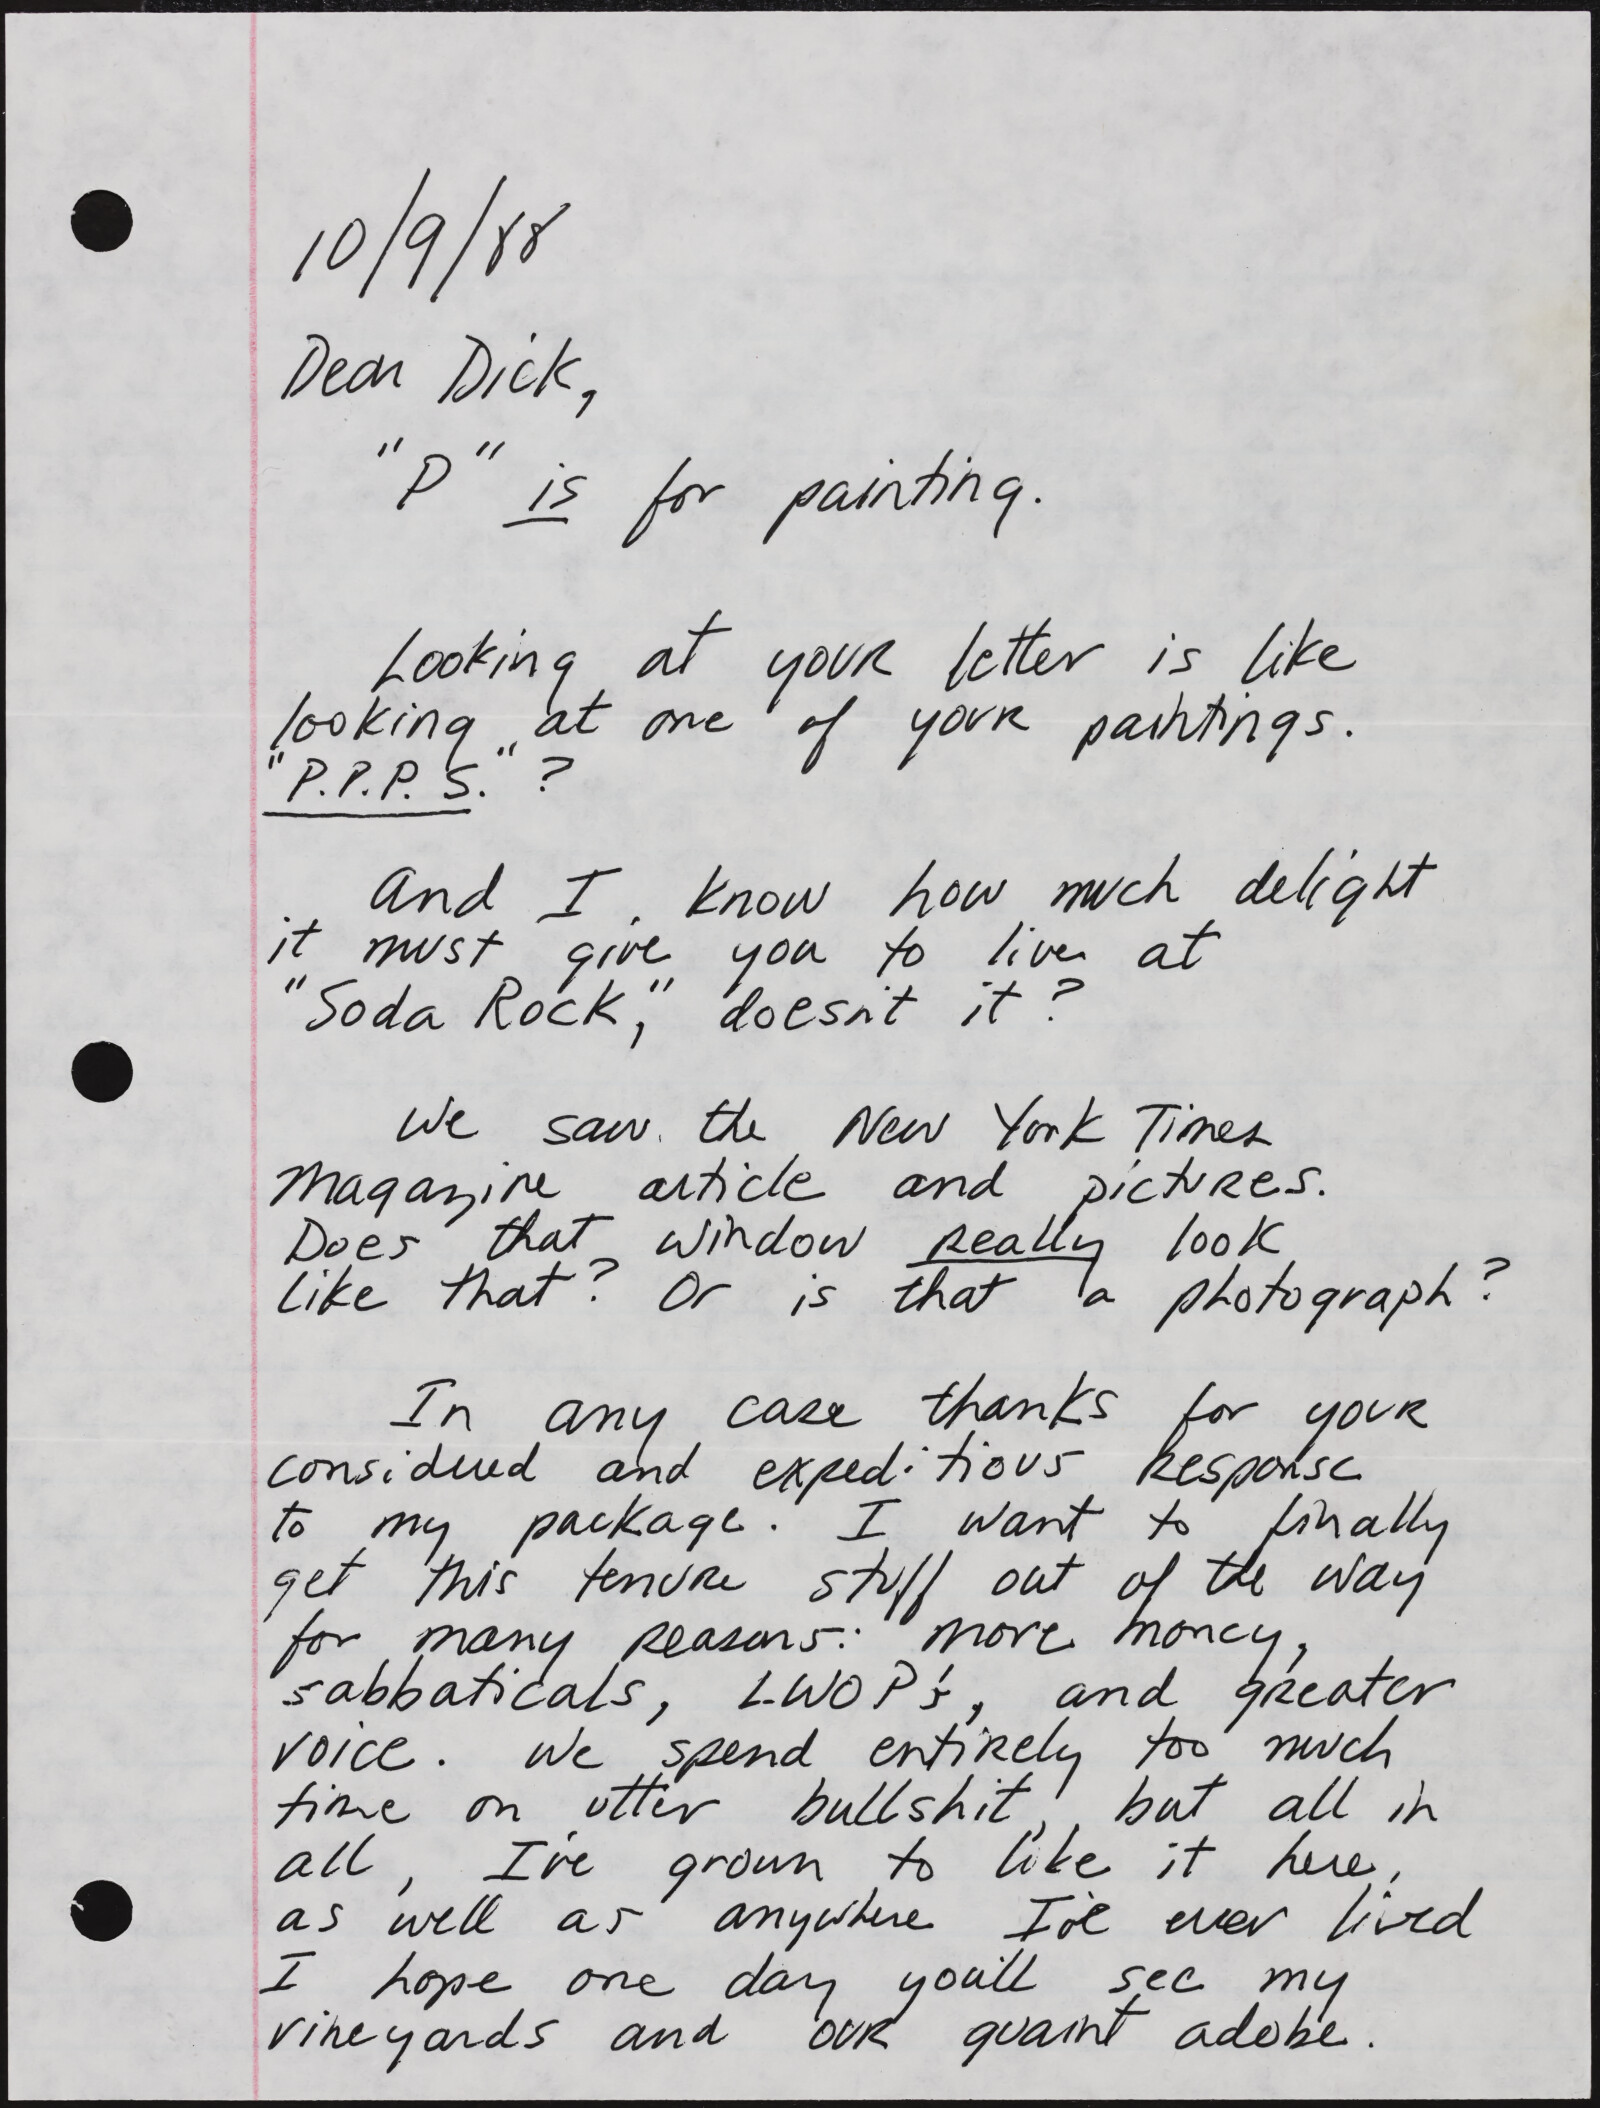 10/9/88
Dear Dick,
"P" is for painting.
Looking at your letter is like
looking at one of your paintings.
"P.P.P.S."?
And I know how much delight
it must give you to live at
"Soda Rock," doesn't it?
We saw the New York Times
Magazine article and pictures.
Does that window really look
like that? Or is that a photograph?
In any case thanks for your
considered and expeditious response
to my package. I want to finally
get this tenure stuff out of the way
for many reasons: more money,
sabbaticals, LWOP's, and greater
voice. We spend entirely too much
time on utter bullshit, but all in
all, I've grown to like it here,
as well as anywhere I've ever lived
I hope one day you'll see my
vineyards and our quaint adobe.